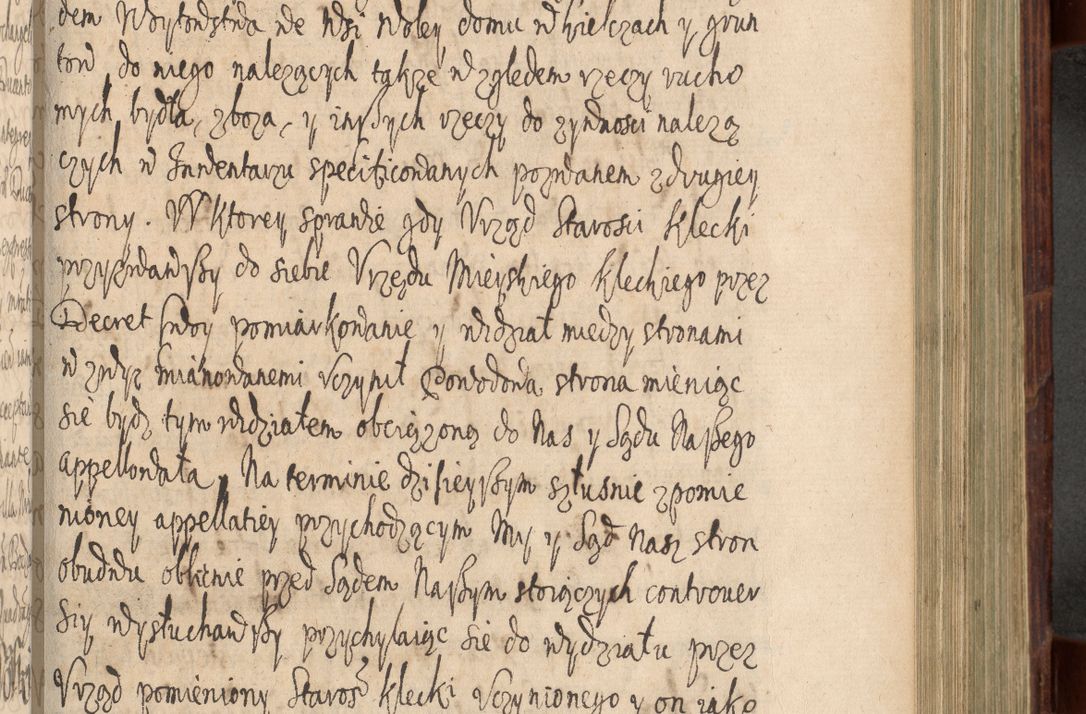 dem Woytowstwa we Wsi Woley domu w Kielczach y grun
tow do niego nalezących także względem rzeczy rucho
mych bydła, zboza, y inszych rzeczy do zywnosci nalezą
czych w Inwentarzu specificowanych pozwanem z drugiey
strony. W ktorey sprawie gdy Urząd Starosci Klecki
przyzwawszy do siebie Urzędu Mieyskiego Kleckiego przez
Decret swoy pomiarkowanie y wydział miedzy stronami
w zwyz mianowanemi uczynił Powodowa strona mieniąc
sie bydz tym wydziałem obciązoną do Nas y Sądu Naszego
appellowała, Na terminie dzisieyszym słusznie z pomie
nioney appellatiey przychodzącym My y Sąd Nasz stron
obudwu oblicnie przed Sądem Naszym stoiączych controver
siy wysłuchawszy przychylaiąc sie do wydziału przez
Urząd pomieniony Staros Klecki uczynionego y on iako